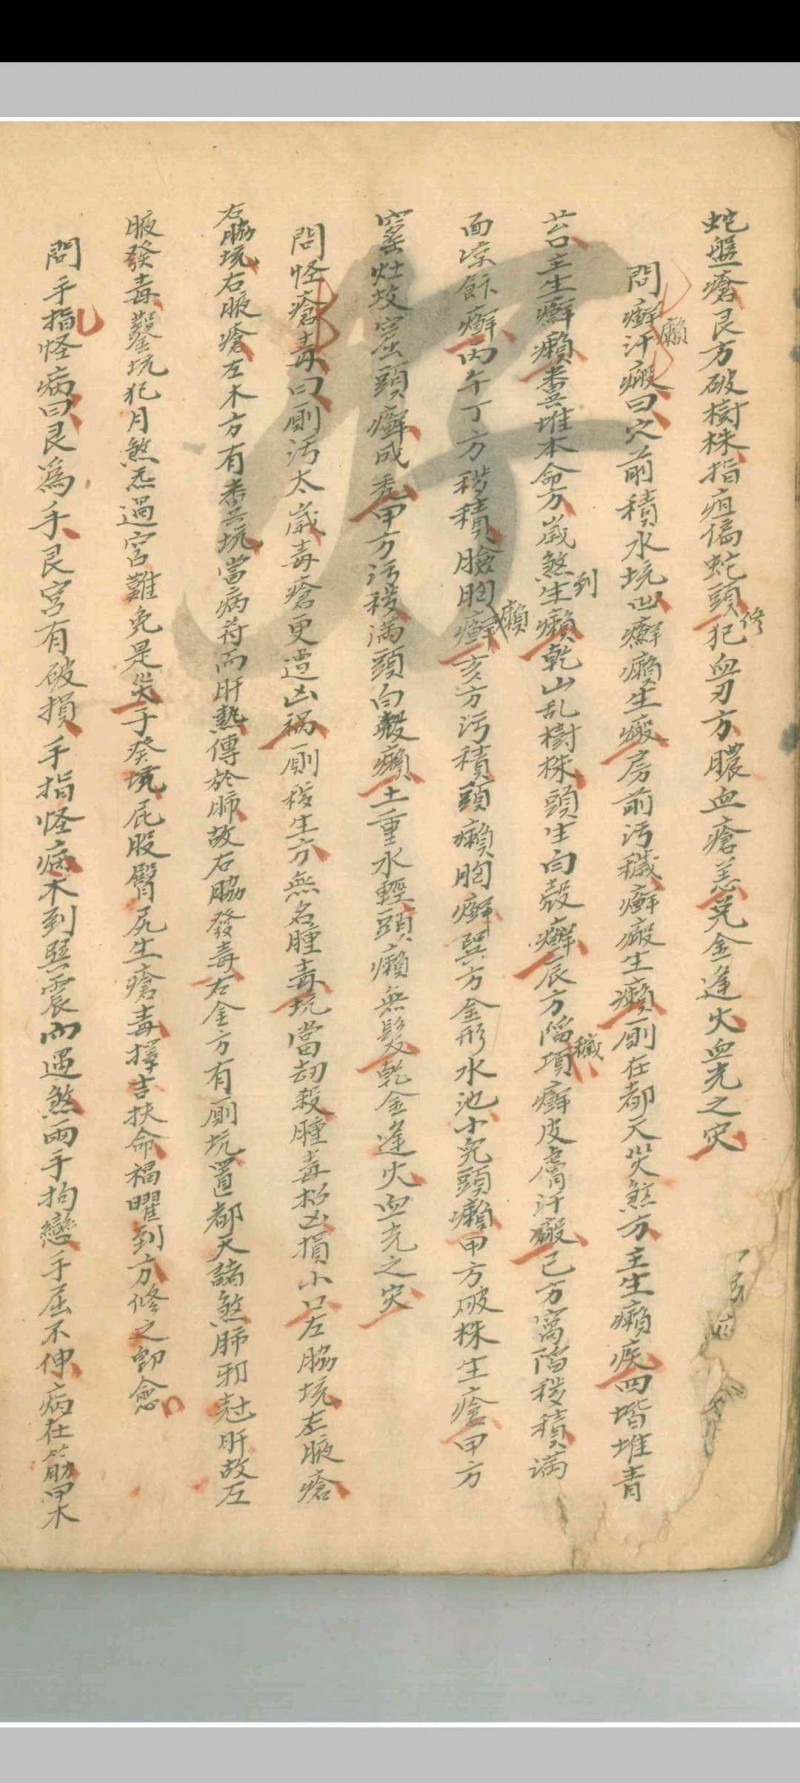 蛇盤瘡艮方破樹株指疽偽蛇頭犯血刃方膿血瘡恙兇金逢火血光之灾
修
問癬汗瘢曰穴前積水坑凼癬癩生瘢房前污穢癬瘢生癩厠在都天災煞方主生癩疾四堦堆青
癩
苔主生癬癩糞堆本命方歲煞生癩乾山乱樹株頭生白殼癬辰方陷項癬皮膚汗瘢己方窩陷穢積满
列
穢
面癬丙午丁方穢積臉胸癬亥方污積頭癩胸癬巽方金形水池小兒頭癩甲方破株生瘡甲方
癩
窰灶坟窟頭癬成禿甲方污穢满頭白殼癩土重水輕頭癩無髮乾金逢火血光之灾
問怪瘡毒曰厠污太歲毒瘡更遭凶禍厠穢生方無名腫毒坑當刼殺腫毒招凶損小口左脇坑左腋瘡
右脇坑右腋瘡左木方有糞坑當病符而肝熱傳於肺故右脇發毒右金方有厠坑置都天諸煞肺邪尅肝故左
腋發毒鑿坑犯月煞忌過宮難免是災子癸坑屁股臀尻生瘡毒擇吉扶命福曜到方修之即愈
問手指怪病曰艮為手艮宮有破損手指怪病木到巽震而遇煞兩手拘戀手屈不伸病在筋甲木